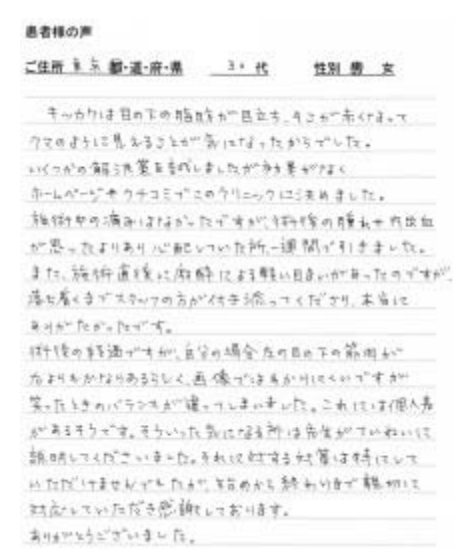 患者様の声
ご住所 東京 都・道・府・県 30 代 性別 男 女
キッカケは目の下の脂肪が目立ち、そこが赤くなって
クマのように見えることが気になったからでした。
いくつかの解決策を試しましたが効果がなく
ホームページやクチコミでこのクリニックに決めました。
施術中の痛みはなかったですが、術後の腫れや内出血
が思ったよりあり心配していた所、一週間で引きました。
また、施術直後に麻酔による軽い目まいがあったのですが、
落ち着くまでスタッフの方が付き添ってくださり、本当に
ありがたかったです。
術後の経過ですが、自分の場合左の目の下の筋肉が
右よりもかなりあるらしく、画像ではわかりにくいですが
笑ったときのバランスが違ってしまいました。これには個人差
があるそうです。そういった気になる所は先生がていねいに
説明してくださいました。それに対する対策は特にして
いただけませんでしたが、始めから終わりまで親切に
対応していただき感謝しております。
ありがとうございました。